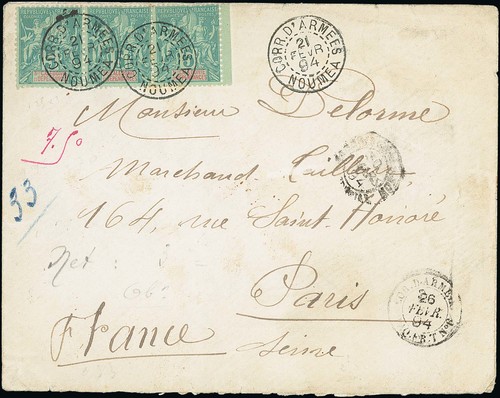 CORR. D'ARMEES
21
FEVR.
94
NOUMEA
CORR. D'ARMEES
21
FEVR.
94
NOUMEA
CORR. D'ARMEES
21
FEVR.
94
NOUMEA
Monsieur Delorme
Marchand-Tailleur
164, rue Saint-Honoré
Paris
France
Seine
7.50
33
COR. D'ARMEES
26
FEVR.
94